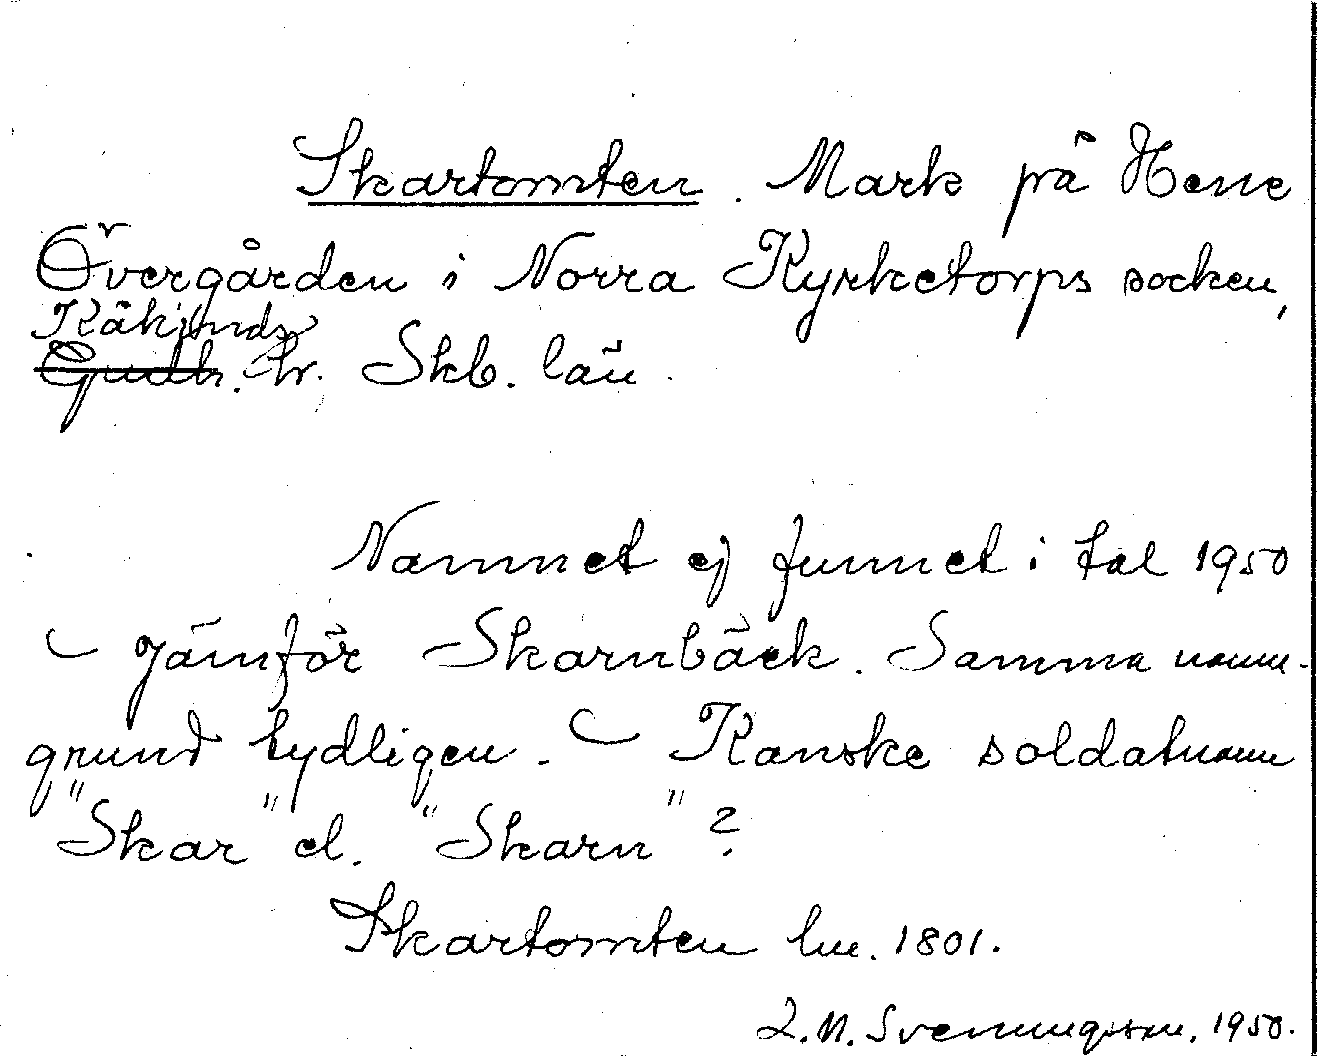 Skartomten. Mark på Hene
Övergården i Norra Kyrketorps socken,
Kåkinds
Gudh. hr. Skb. län.
Namnet ej funnet i tal 1950
– Jämför Skarnbäck. Samma namn-
grund tydligen. – Kanske soldatnamn
"Skar" el. "Skarn"?
Skartomten lm. 1801.
L.M. Svenungsson, 1950.